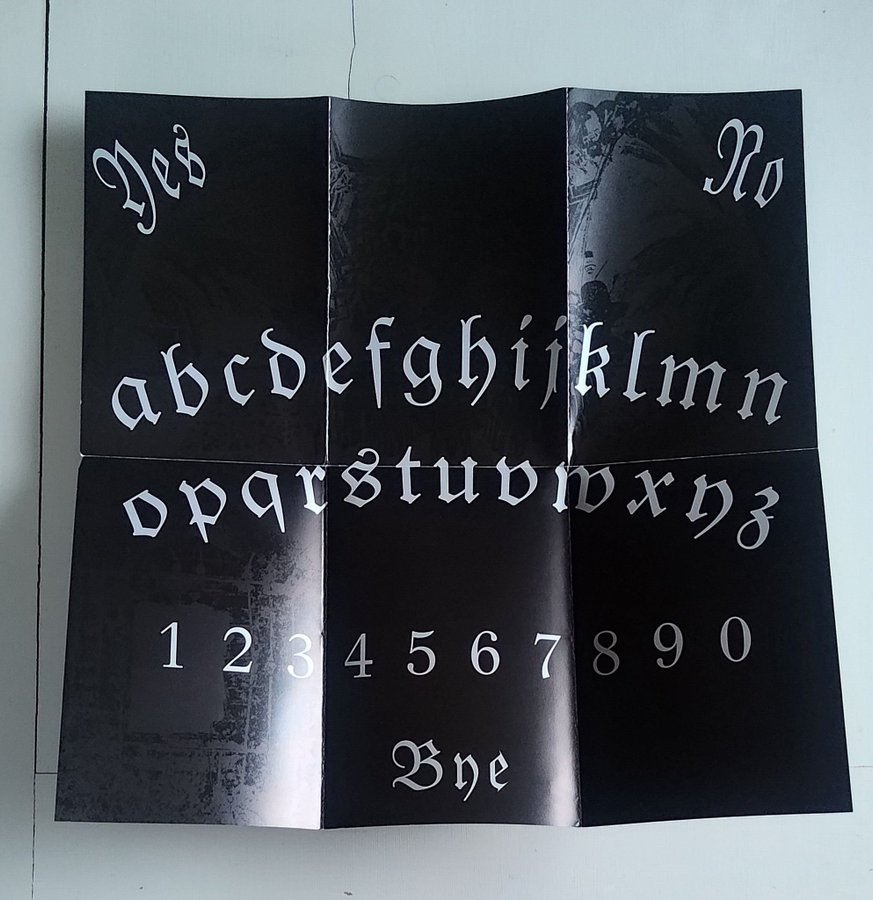 Yes No
abcdefghijklmn
opqrstuvwxyz
1 2 3 4 5 6 7 8 9 0
Bye